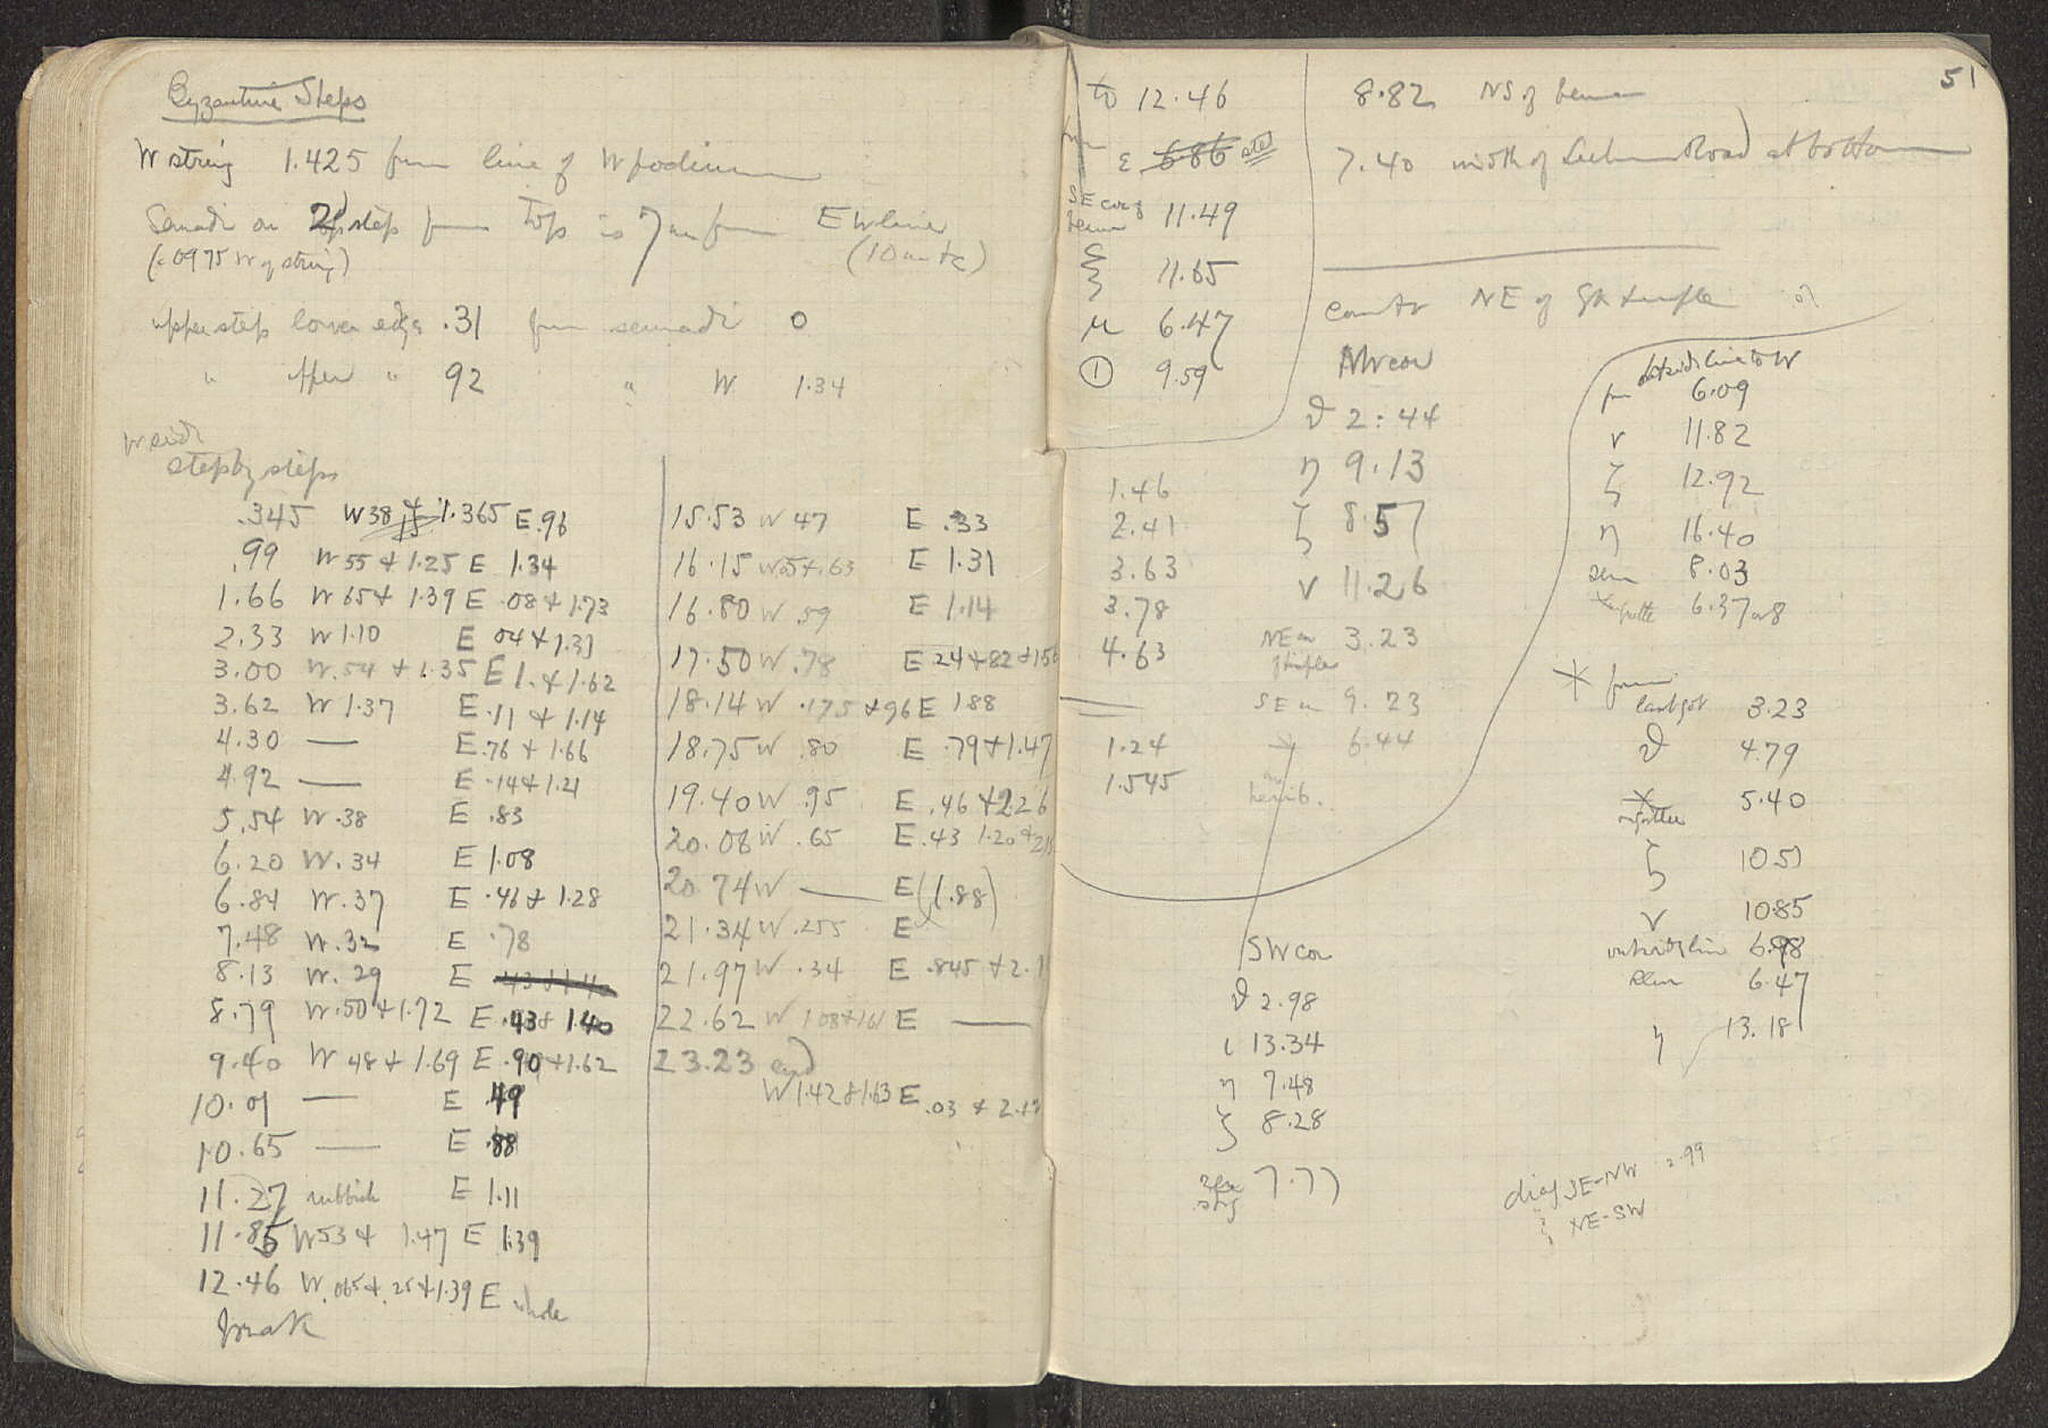 Byzantine Steps
W string 1.425 from line of W podium
Semadi on 2d step from top is 7 m from E W line
(.0975 W of string) (10 m tc)
upper step lower edge .31 from semadi 0
" upper " 92 " W 1.34
W side
step by steps
.345 W 38 & 1.365 E .96
.99 W 55 & 1.25 E 1.34
1.66 W 65 & 1.39 E .08 & 1.73
2.33 W 1.10 E 04 & 1.31
3.00 W .54 & 1.35 E 1. & 1.62
3.62 W 1.37 E .11 & 1.14
4.30 — E .76 & 1.66
4.92 — E .14 & 1.21
5.54 W .38 E .83
6.20 W .34 E 1.08
6.84 W .37 E .46 & 1.28
7.48 W .32 E .78
8.13 W .29 E
8.79 W .50 & 1.72 E .43 & 1.40
9.40 W 48 & 1.69 E .90 & 1.62
10.01 — E .49
10.65 — E .88
11.27 rubbish E 1.11
11.85 W 53 & 1.47 E 1.39
12.46 W .065 & .25 & 1.39 E whole
break
15.53 W 47 E .33
16.15 W .05 & .63 E 1.31
16.80 W .59 E 1.14
17.50 W .78 E 24 & 82 & 156
18.14 W .175 & 96 E 188
18.75 W .80 E .79 & 1.47
19.40 W .95 E .46 & 2.26
20.08 W .65 E .43 1.20 &
20.74 W — E (1.88)
21.34 W .255 E
21.97 W .34 E .845 & 2.1
22.62 W 1.08 & 1.61 E —
23.23 end
W 1.42 & 1.63 E .03 & 2.12
51
to 12.46
from
ε 6.86 step
SE cor of bema 11.49
ξ 11.65
μ 6.47
① 9.59
8.82 NS of bema
7.40 width of Lechaeum Road at bottom
1.46
2.41
3.63
3.78
4.63
1.24
1.545
Counter NE of Gk temple
NW cor
θ 2.44
η 9.13
ζ 8.57
ν 11.26
NE cor of temple 3.23
SE cor 9.23
* 6.44
on hemib.
SW cor
θ 2.98
ι 13.34
η 7.48
ζ 8.28
7.77
outside line to W
from 6.09
ν 11.82
ζ 12.92
η 16.40
sem 8.03
* grotto 6.37 or 8
* from
last pt 3.23
θ 4.79
* on grotto 5.40
ζ 10.51
ν 10.85
outside line 6.98
sem 6.47
η 13.18
diag SE-NW 2.99
NE-SW